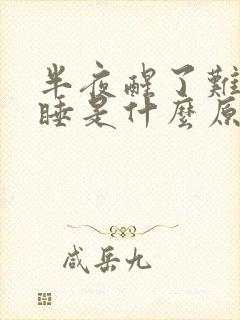 半夜醒了難
睡是什麼原
咸岳九